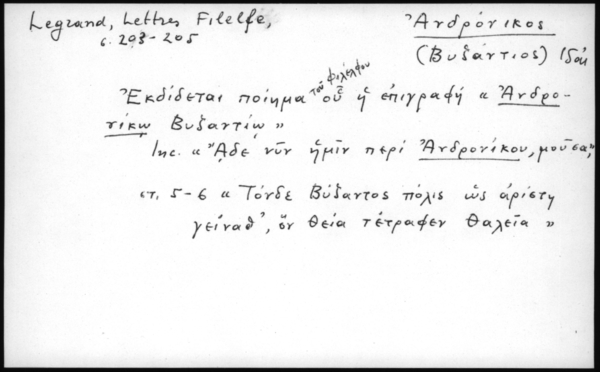 Legrand, Lettres Filelfe,
σ. 203-205
Ἀνδρόνικος
(Βυζάντιος)
Ἐκδίδεται ποίημα τοῦ Φιλέλφου οὗ ἡ ἐπιγραφή « Ἀνδρο-
νίκῳ Βυζαντίῳ »
Inc. « Ἄδε νῦν ἡμῖν περί Ἀνδρονίκου, μοῦσα,"
στ. 5-6 « Τόνδε Βύζαντος πόλις ὡς ἀρίστη
γείναθ', ὅν θεία τέτραφεν Θαλεῖα »